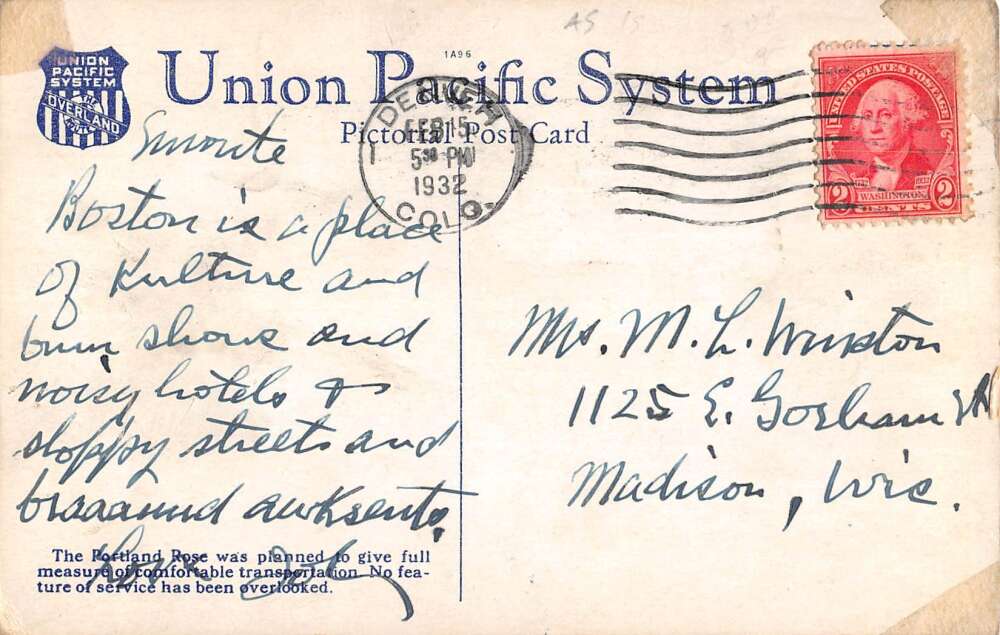 1A96
UNION
PACIFIC
SYSTEM
THE
OVERLAND
Union Pacific System
Pictorial Post Card
DENVER
FEB 15
5 30 PM
1932
COLO.
1
UNITED STATES POSTAGE
WASHINGTON
2 CENTS 2
Boston is a place
of Kulture and
bum shows and
noisy hotels &
sloppy streets and
braaaund awksents.
Love
Mrs. M. L. Winston
1125 E. Gorham St
Madison, Wis.
The Portland Rose was planned to give full
measure of comfortable transportation. No fea-
ture of service has been overlooked.